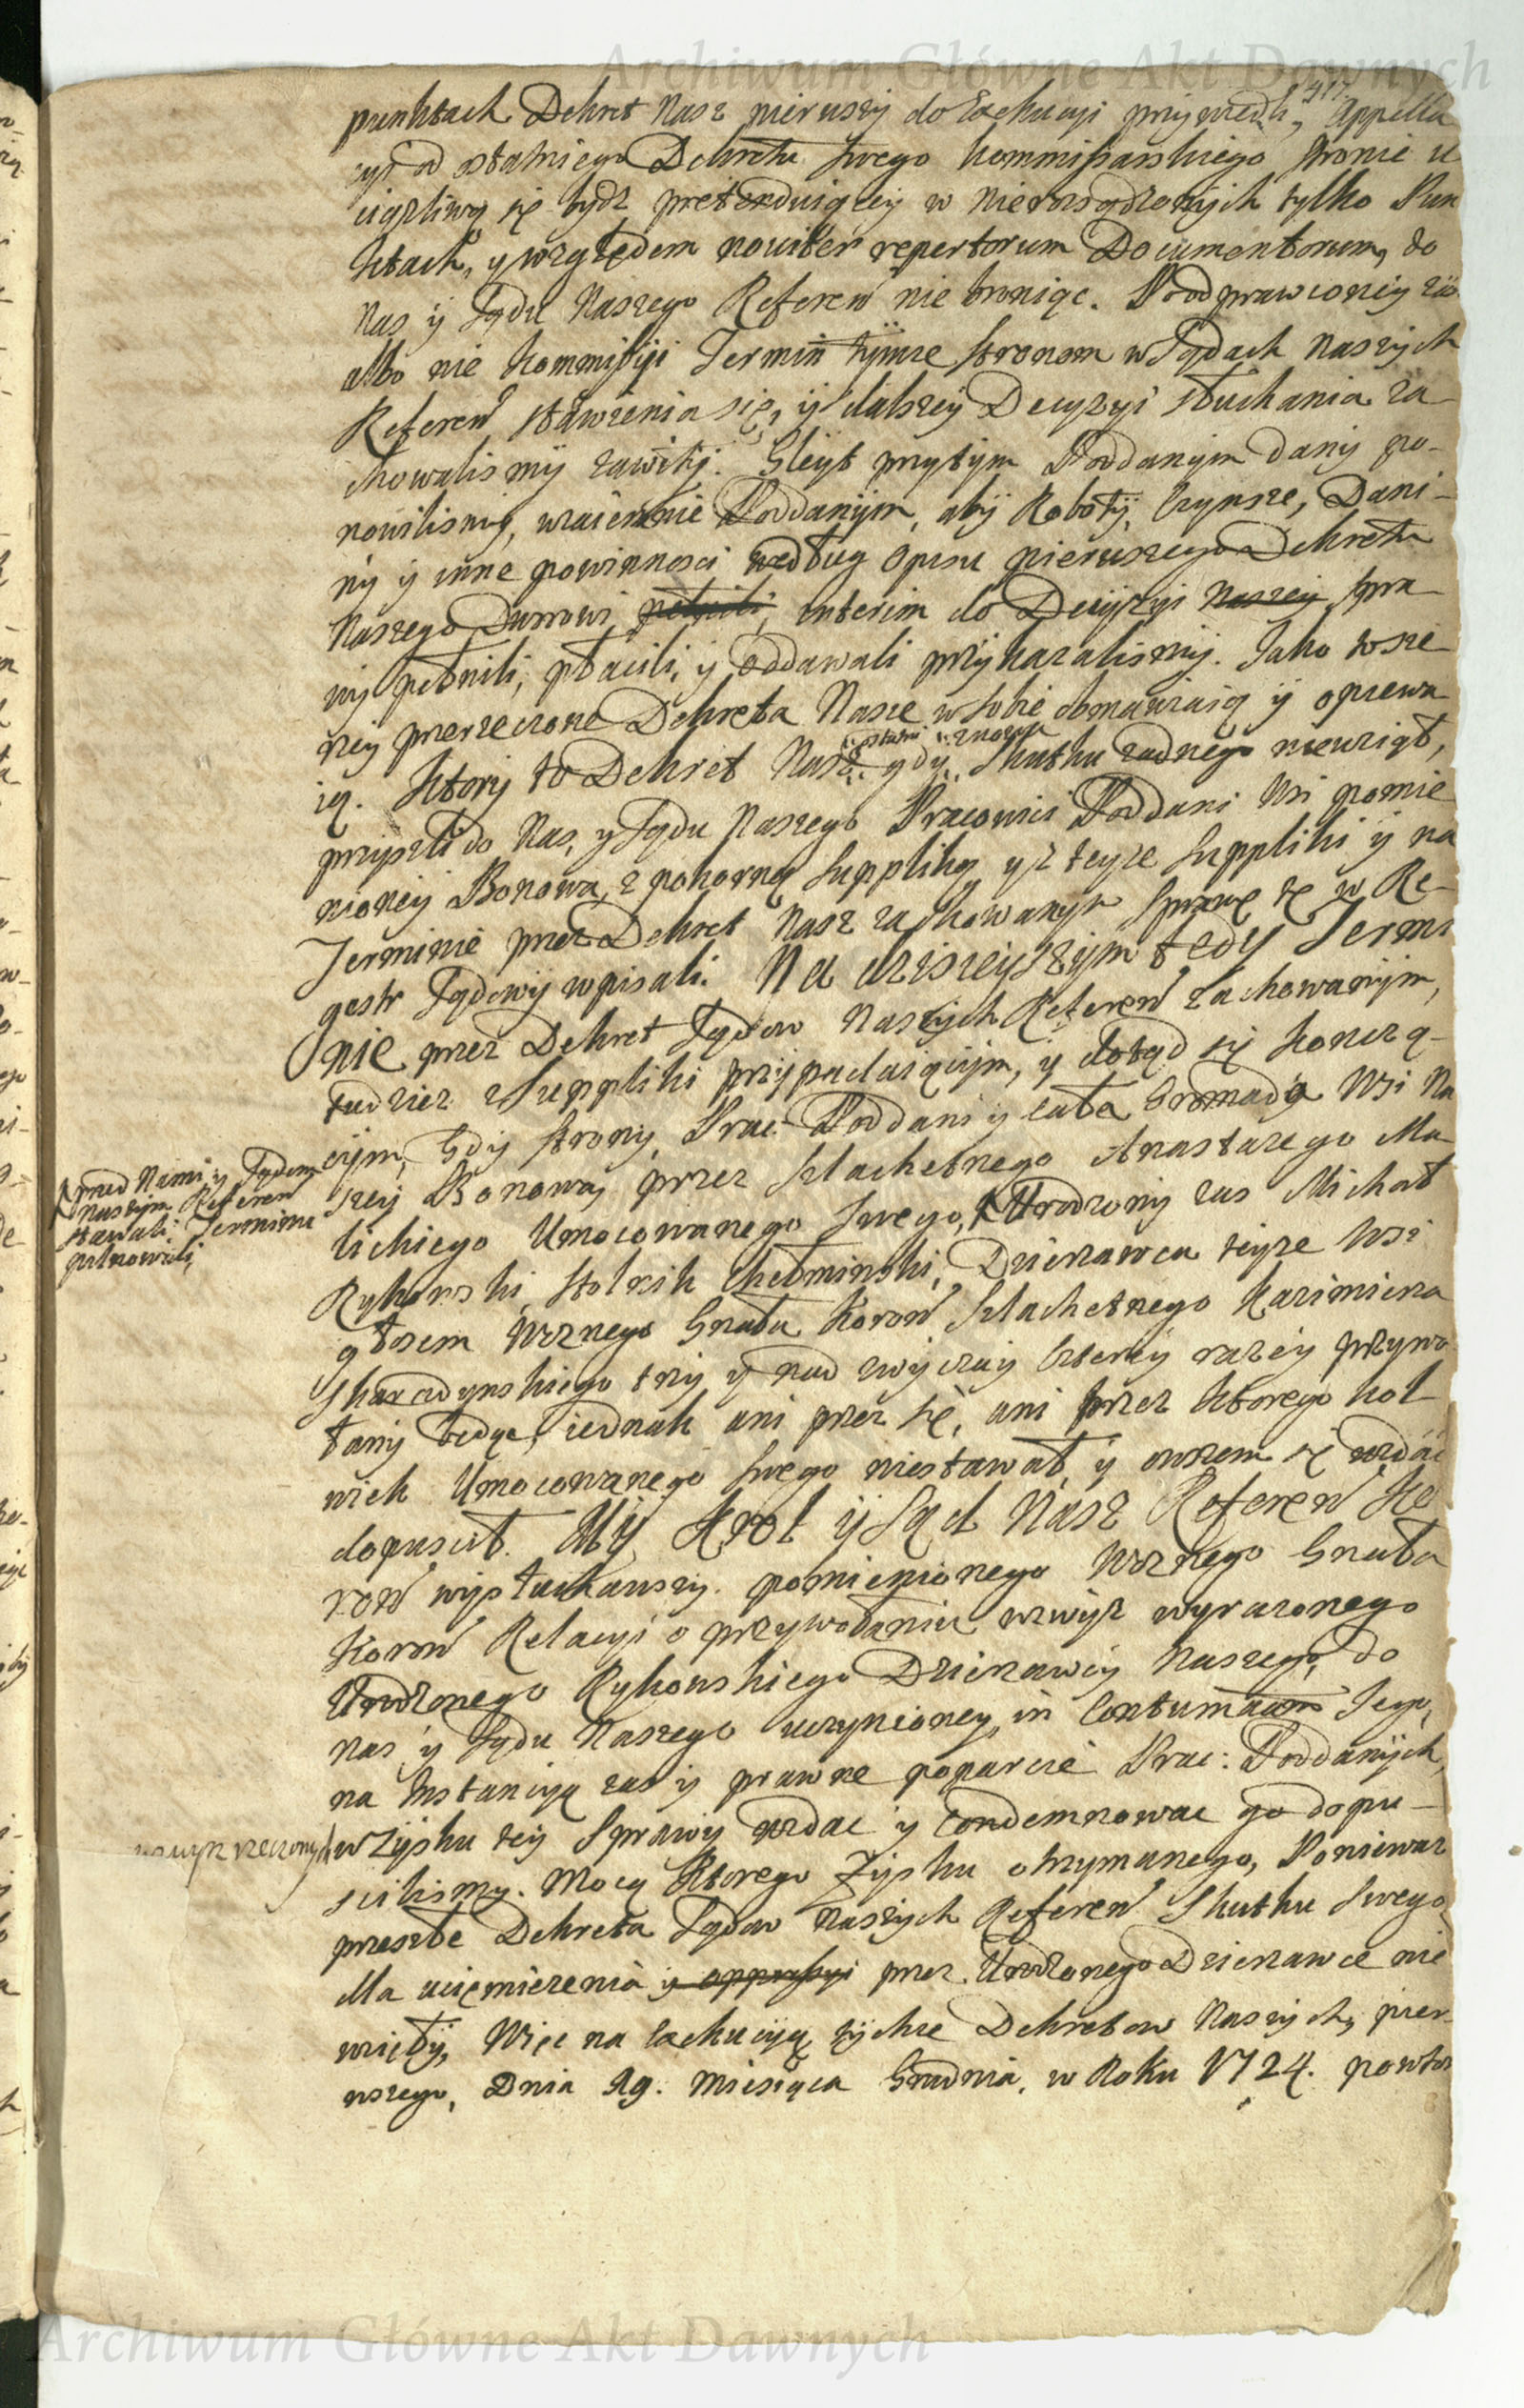 Archiwum Główne Akt Dawnych
417
punktach Dekret Nasz pierwszy do Exekucyi przywiedli, Appella
cyi od ostatniego Dekretu swego Kommissarskiego stronie u
ciązliwą się bydz pretenduiącey w nierozsądzonych tylko Pun
ktach, y względem noviter repertorum Documentorum, do
Nas y Sądu Naszego Referen nie broniąc. Po odprawioney zas
albo nie Kommissyi Termin tymze stronom w Sądach Naszych
Referen stawienia się, y dalszey Decyzyi słuchania za-
chowalismy zawity. Gleyt przytym Poddanym dany po-
nowilismy, wzaiemnie Poddanym, aby Roboty, Czynsze, Dani-
ny y inne powinnosci według opisu pierwszego Dekretu
Naszego Dworowi pełnili, interim do Decyzyi Naszey spra
wy pełnili, płacili, y oddawali przykazalismy. Jako to sze
rzey przerzeczone Dekreta Nasze w sobie obmawiaią y opiewa
ią. Ktory to Dekret Nasz ostatni gdy znowu skutku zadnego niewziął,
przyszli do Nas, y Sądu Naszego Pracowici Poddani Wsi pomie
nioney Bonowa, z pokorną suppliką y z teyze suppliki y na
Terminie przez Dekret Nasz zachowanym sprawę tę w Re-
gestr Sądowy wpisali. Na dzisieyszym tedy Termi
nie przez Dekret Sądow Naszych Referen zachowanym,
tudziez z Suppliki przypadaiącym, y dotąd się kończą-
cym, Gdy strony, Prac: Poddani y cała Gromada Wsi Na
szey Bonowa, przez Szlachetnego Anastazego Ma
lickiego Umocowanego swego, Urodzony zas Michał
przed Nami y Sądem
naszym Referen
stawali Terminu
pilnowali,
Rykowski Stolnik Chełminski, Dzierzawca teyze Wsi
głosem Woznego Gnała Koron Szlachetnego Kazimierza
Skarzdynskiego trzy y nad zwyczay czterey razy przywo
łany będąc, iednak ani przez się, ani przez ktorego kol
wiek Umocowanego swego niestawał, y owszem się wzdać
dopuscił. My Krol y Sąd Nasz Referen Ko
ron wysłuchawszy pomienionego Woznego Gnała
Koron Relacyi o przywołaniu wzwyz wyrazonego
Urodzonego Rykowskiego Dzierzawcy Naszego, do
Nas y Sądu Naszego uczynioney, in Contumaciam Jego,
na Instancyą zas y prawne poparcie Prac: Poddanych,
wzwyz rzeczonych
w Zysku tey Sprawy wzdac y Condemnowac go dopu-
scilismy. Mocą ktorego Zysku otrzymanego, Poniewaz
przeszłe Dekreta Sądow Naszych Referen Skutku swego,
dla uciemiezenia y oppressyi przez Urodzonego Dzierzawce nie
wzięły, Więc na Exekucyą tychze Dekretow Naszych, pier-
wszego, Dnia 19. Miesiąca Grudnia, w Roku 1724. powtor
Archiwum Główne Akt Dawnych